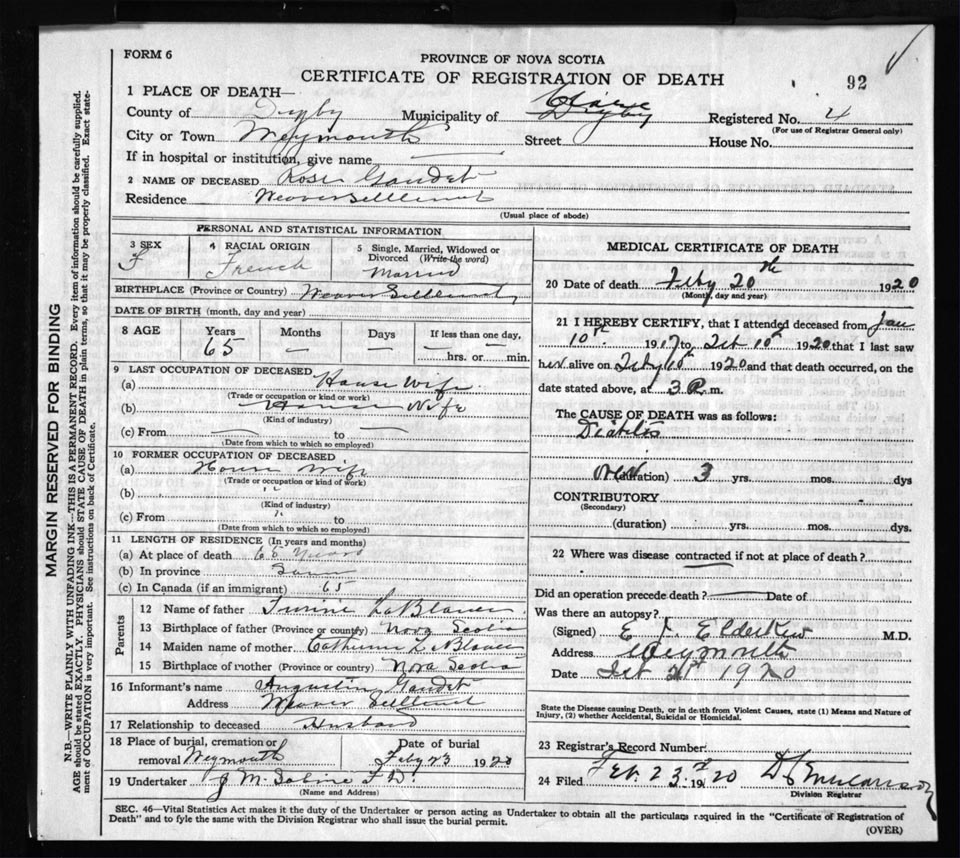 FORM 6
PROVINCE OF NOVA SCOTIA
CERTIFICATE OF REGISTRATION OF DEATH
92
1 PLACE OF DEATH—
County of Digby Municipality of Clare Digby Registered No. 4
(For use of Registrar General only)
City or Town Weymouth Street House No.
If in hospital or institution, give name —
2 NAME OF DECEASED Rose Gaudet
Residence Weaver Settlement
(Usual place of abode)
PERSONAL AND STATISTICAL INFORMATION
3 SEX F
4 RACIAL ORIGIN French
5 Single, Married, Widowed or Divorced (Write the word) Married
BIRTHPLACE (Province or Country) Weaver Settlement
DATE OF BIRTH (month, day and year)
8 AGE Years 65 Months — Days If less than one day, — hrs. or — min.
9 LAST OCCUPATION OF DECEASED
(a) House Wife
(Trade or occupation or kind or work)
(b) House Wife
(Kind of industry)
(c) From — to —
(Date from which to which so employed)
10 FORMER OCCUPATION OF DECEASED
(a) House Wife
(Trade or occupation or kind of work)
(b) "
(Kind of industry)
(c) From " to
(Date from which to which so employed)
11 LENGTH OF RESIDENCE (In years and months)
(a) At place of death 65 Years
(b) In province
(c) In Canada (if an immigrant) 65
Parents
12 Name of father LeBlanc
13 Birthplace of father (Province or country) Nova Scotia
14 Maiden name of mother Catherine LeBlanc
15 Birthplace of mother (Province or country) Nova Scotia
16 Informant's name Augustin Gaudet
Address Weaver Settlement
17 Relationship to deceased Husband
18 Place of burial, cremation or removal Weymouth Date of burial Feby 23 1920
19 Undertaker J M Sabine F D
(Name and Address)
MEDICAL CERTIFICATE OF DEATH
20 Date of death Feby 20th 1920
(Month, day and year)
21 I HEREBY CERTIFY, that I attended deceased from Jan
10th 1917 to Feb 10th 1920 that I last saw
her alive on Feby 10th 1920 and that death occurred, on the
date stated above, at 3 P. m.
The CAUSE OF DEATH was as follows:
Diabetes
(duration) 3 yrs. mos. dys
CONTRIBUTORY
(Secondary)
(duration) yrs. mos. dys.
22 Where was disease contracted if not at place of death?
Did an operation precede death? — Date of
Was there an autopsy?
(Signed) E J Elderkin M.D.
Address Weymouth
Date Feb 21st 1920
State the Disease causing Death, or in death from Violent Causes, state (1) Means and Nature of
Injury, (2) whether Accidental, Suicidal or Homicidal.
23 Registrar's Record Number:
24 Filed Feb. 23rd 1920
Division Registrar
SEC. 46—Vital Statistics Act makes it the duty of the Undertaker or person acting as Undertaker to obtain all the particulars required in the "Certificate of Registration of
Death" and to fyle the same with the Division Registrar who shall issue the burial permit.
(OVER)
MARGIN RESERVED FOR BINDING
N.B.—WRITE PLAINLY WITH UNFADING INK—THIS IS A PERMANENT RECORD. Every item of information should be carefully supplied.
AGE should be stated EXACTLY. PHYSICIANS should STATE CAUSE OF DEATH in plain terms, so that it may be properly classified. Exact state-
ment of OCCUPATION is very important. See instructions on back of Certificate.